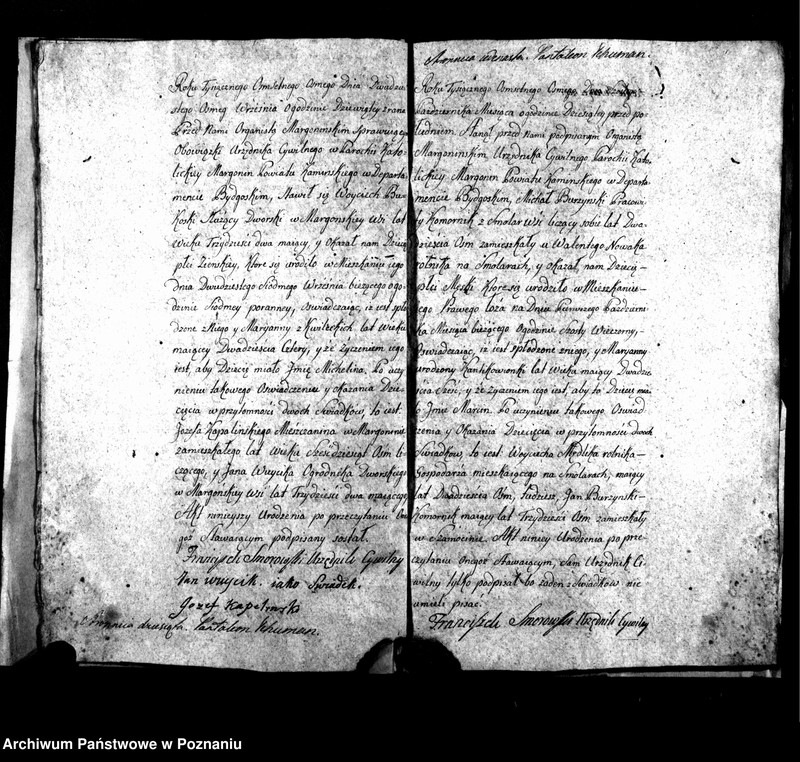 Roku Tysiącznego Osmsetnego Osmego Dnia Dwudzie
stego Osmeg Września Ogodzinie Dziewiątey zrana
Przed Nami Organistą Margoninskim Sprawuiącym
Obowiązki Urzędnika Cywilnego w Parochii Kato
lickiey Margonin Powiatu Kaminskiego w Departa
mencie Bydgoskim, Stawił się Woyciech
Służący Dworski w Margonskiey Wsi lat
Wieku Trzydziesci dwa maiący, y Okazał nam Dziecię
płci Zienskiey, Które się urodziło w Mieszkaniu iego
dnia Dwudziestego Siodmego Września bieżącego ogo
dzinie Siodmey poranney, Oswiadczaiąc, iż iest spło
dzone z Niego y Maryanny z Kwileckich lat Wieku
maiącey Dwadziescia Cztery, y że Życzeniem iego
iest, aby Dziecię miało Imię Michelina, Po uczy
nieniu takowego Oswiadczenia y Okazania Dzie
cięcia w przytomności dwoch Swiadkow, to iest:
Jozefa Kapalinskiego Mieszczanina w Margoninie
zamieszkałego lat Wieku Szesdziesiąt Osm li
czącego, y Jana Wuycika Ogrodnika Dworskiego
w Margonskiey Wsi lat Trzydziesci dwa maiącego
Akt ninieyszy Urodzenia po przeczytaniu Onc
goż Stawaiącym podpisany został.
Franciszek Smorowski Urzędnik Cywilny
Jan wuycik iako Swiadek.
Jozef Kapelinski
Stronnica dziesiąta. Pantaleon Schuman.
Stronnica iedenasta. Pantaleon Schuman.
Roku Tysiącznego Osmsetnego Osmego
Pazdziernika Miesiąca ogodzinie Dziesiątey przed po
łudniem. Stanął przed Nami podpisanym Organistą
Margoninskim Urzędnika Cywilnego Parochii Kato
lickiey Margonin Powiatu Kaminskiego w Departa
mencie Bydgoskim, Michał Burzynski Pracowi
ty Komornik z Smolar Wsi liczący sobie lat Dwa
dziescia Osm zamieszkały u Walentego Nowaka
rolnika na Smolarach, y okazał nam Dziecię
płci Męski Które się urodziło w Mieszkaniu
iego Prawego Łoża na Dniu Pierwszego Pazdzierni
ka Miesiąca bieżącego Ogodzinie Szosty Wieczorny,
Oswiadczaiąc, iż iest spłodzone z niego, y Maryanny
urodzony Kantikowonki lat Wieka maiący Dwadzie
scia Szesć, y że Życzeniem iego iest, aby to Dziecię mia
ło Imie Marcin. Po uczynieniu takowego Oswiad
czenia y Okazania Dziecięcia w przytomności dwoch
Swiadkow, to iest Woyciecha Mrolika rolnika
Gospodarza mieszkaiącego na Smolarach, maiący
lat Dwadziescia Osm, tudziesz, Jan Burzynski
Komornik maiący lat Trzydziesci Osm zamieszkały
w. Akt ninieyszy Urodzenia po prze
czytaniu Onegoż Stawaiącym, Sam Urzędnik Cy
wilny tylko podpisał bo żaden z Swiadków nie
umieli pisać.
Franciszek Smorowski Urzędnik Cywilny
Archiwum Państwowe w Poznaniu